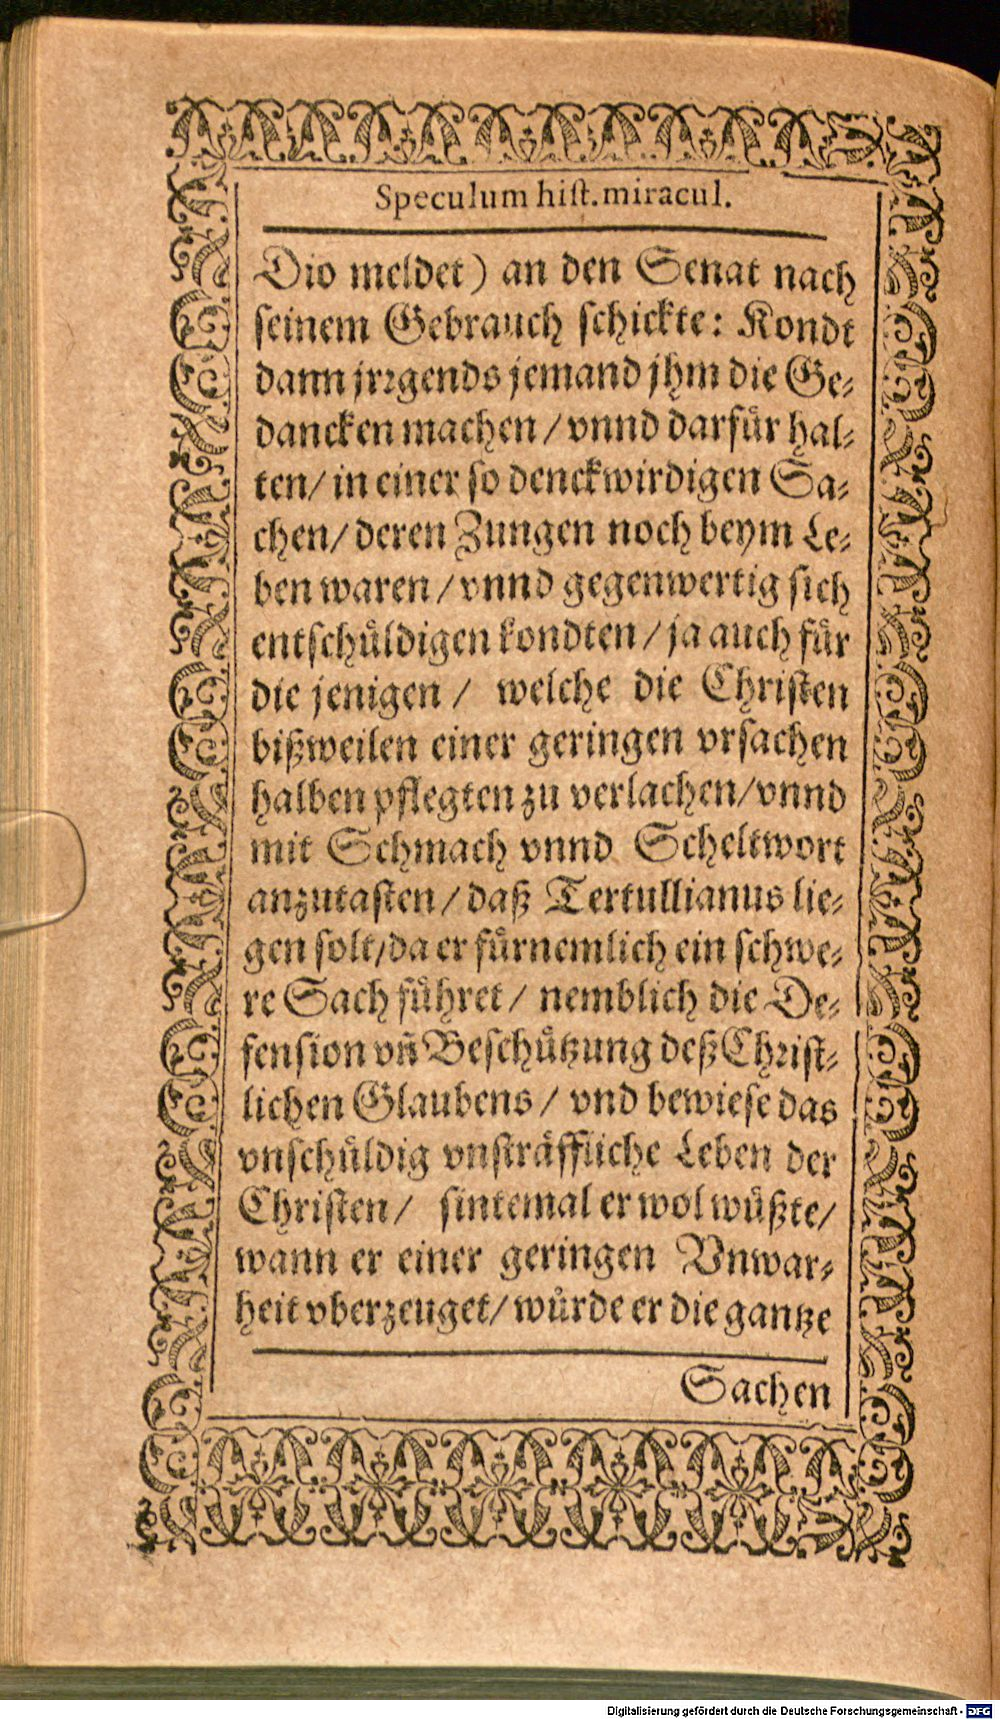 Speculum hiſt. miracul.
Dio meldet) an den Senat nach
ſeinem Gebrauch ſchickte: Kondt
dann jrꝛgends jemand jhm die Ge-
dancken machen / vnnd darfuͤr hal-
ten / in einer ſo denckwirdigen Sa-
chen / deren Zungen noch beym Le-
ben waren / vnnd gegenwertig ſich
entſchuͤldigen kondten / ja auch fuͤr
die jenigen / welche die Chriſten
bißweilen einer geringen vrſachen
halben pflegten zu verlachen / vnnd
mit Schmach vnnd Scheltwort
anzutaſten / daß Tertullianus lie-
gen ſolt / da er fuͤrnemlich ein ſchwe-
re Sach fuͤhret / nemblich die De-
fenſion vñ Beſchuͤtzung deß Chꝛiſt-
lichen Glaubens / vnd bewieſe das
vnſchuͤldig vnſtraͤffliche Leben der
Chriſten / ſintemal er wol wuͤßte /
wann er einer geringen Vnwar-
heit vberzeuget / wuͤrde er die gantze
Sachen
Digitalisierung gefördert durch die Deutsche Forschungsgemeinschaft - DFG